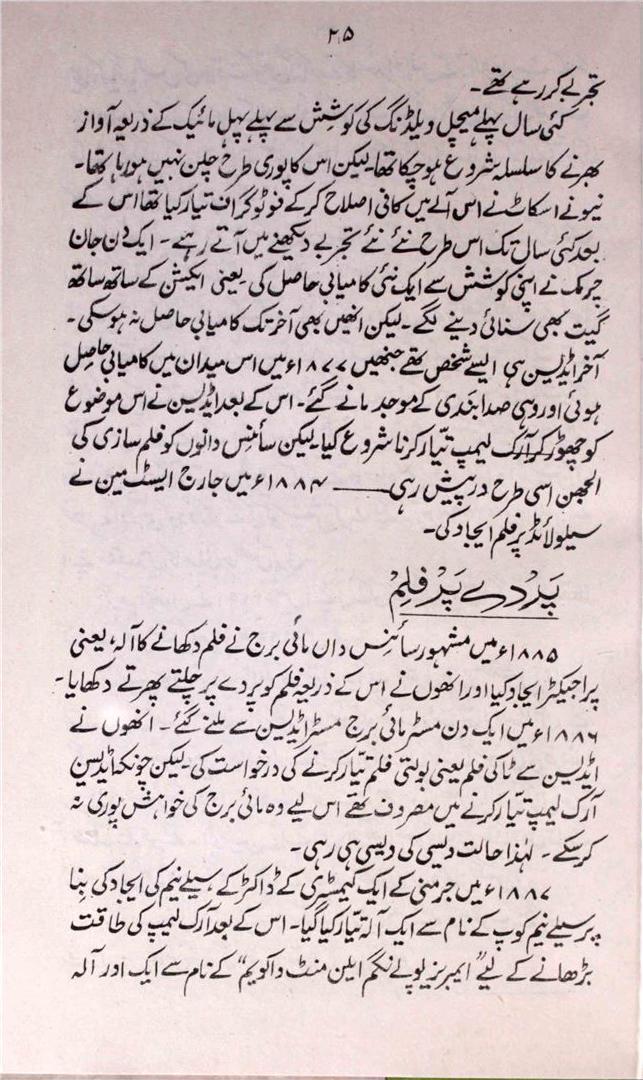 ۲۵
تجربے کر رہے تھے۔
کئی سال پہلے میچل ویلڈنگ کی کوشش سے پہلے پہل مائیک کے ذریعہ آواز
بھرنے کا سلسلہ شروع ہو چکا تھا۔ لیکن اس کا پوری طرح چلن نہیں ہو رہا تھا۔
نیونے اسکاٹ نے اس آلے میں کافی اصلاح کر کے فوٹو گراف تیار کیا تھا اس کے
بعد کئی سال تک اس طرح نئے نئے تجربے دیکھنے میں آتے رہے۔ ایک دن جان
چرمک نے اپنی کوشش سے ایک نئی کامیابی حاصل کی یعنی ایکشن کے ساتھ ساتھ
گیت بھی سنائی دینے لگے۔ لیکن انھیں بھی آخر تک کامیابی حاصل نہ ہو سکی۔
آخر ایڈیسن ہی ایسے شخص تھے جنھیں ۱۸۷۷ء میں اس میدان میں کامیابی حاصل
ہوئی اور وہی صدا بندی کے موجد مانے گئے۔ اس کے بعد ایڈیسن نے اس موضوع
کو چھوڑ کر آرک لیمپ تیار کرنا شروع کیا۔ لیکن سائنس دانوں کو فلم سازی کی
الجھن اسی طرح درپیش رہی ــــــ ۱۸۸۴ء میں جارج ایسٹ مین نے
سیلولائڈ پر فلم ایجاد کی۔
پَردے پَر فلم
۱۸۸۵ء میں مشہور سائنس داں مائی برج نے فلم دکھانے کا آلہ، یعنی
پراجیکٹر ایجاد کیا اور انھوں نے اس کے ذریعہ فلم کو پردے پر چلتے پھرتے دکھایا۔
۱۸۸۶ء میں ایک دن مسٹر مائی برج مسٹر ایڈیسن سے ملنے گئے۔ انھوں نے
ایڈیسن سے ٹاکی فلم یعنی بولتی فلم تیار کرنے کی درخواست کی۔ لیکن چونکہ ایڈیسن
آرک لیمپ تیار کرنے میں مصروف تھے اس لیے وہ مائی برج کی خواہش پوری نہ
کر سکے۔ لہٰذا حالت ویسی کی ویسی ہی رہی۔
۱۸۸۷ء میں جرمنی کے ایک کیمسٹری کے ڈاکٹر کے سیلے نیم کی ایجاد کی بِنا
پر سیلے نیم کوپ کے نام سے ایک آلہ تیار کیا گیا۔ اس کے بعد آرک لیمپ کی طاقت
بڑھانے کے لیے "ایمبریز یولے نگم ایلن منٹ واکویم" کے نام سے ایک اور آلہ